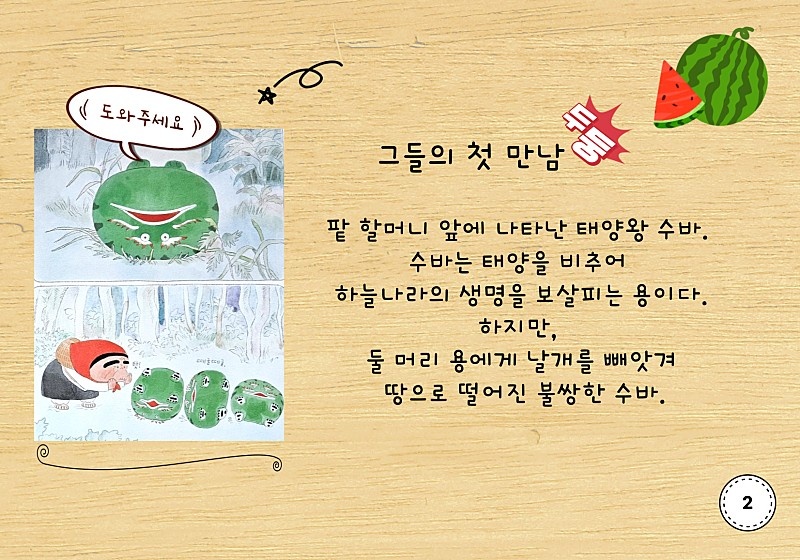 도와주세요
그들의 첫 만남
두둥
팥 할머니 앞에 나타난 태양왕 수바.
수바는 태양을 비추어
하늘나라의 생명을 보살피는 용이다.
하지만,
둘 머리 용에게 날개를 빼앗겨
땅으로 떨어진 불쌍한 수바.
2